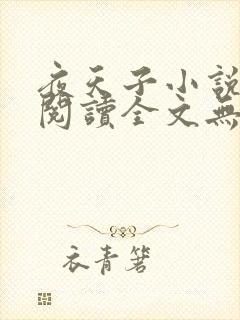 夜天子小說
閱讀全文無
衣青箬